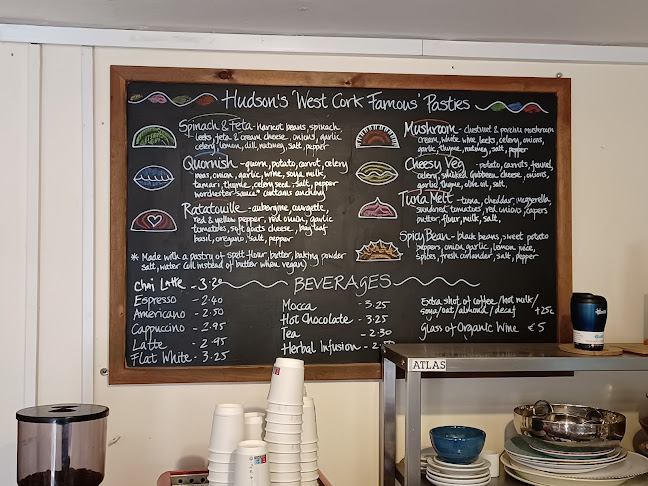 Hudson's 'West Cork Famous' Pasties
Spinach & Feta - haricot beans, spinach,
leeks, feta & cream cheese, onions, garlic
celery, lemon, dill, nutmeg, salt, pepper
Quornish - quorn, potato, carrot, celery
peas, onion, garlic, wine, soya milk,
tamari, thyme, celery seed, salt, pepper
worchester-sauce* contains anchovy
Ratatouille - aubergine, courgette,
red & yellow pepper, red onion, garlic
tomatoes, soft goats cheese, bay leaf
basil, oregano, salt, pepper
* Made with a pastry of spelt flour, butter, baking powder
salt, water (oil instead of butter when vegan)
Mushroom - chestnut & porcini mushroom
cream, white wine, leeks, celery, onions,
garlic, thyme, nutmeg, salt, pepper
Cheesy Veg - potato, carrots, fennel,
celery, smoked Gubbeen cheese, onions,
garlic, thyme, olive oil, salt
Tuna Melt - tuna, cheddar, mozzerella,
sundried tomatoes, red onions, capers
butter, flour, milk, salt,
Spicy Bean - black beans, sweet potato
peppers, onion, garlic, lemon, rice,
spices, fresh coriander, salt, pepper
BEVERAGES
Chai Latte - 3.20
Espresso - 2.40
Americano - 2.50
Cappuccino - 2.95
Latte - 2.95
Flat White - 3.25
Mocca - 3.25
Hot Chocolate - 3.25
Tea - 2.30
Herbal Infusion - 2.
Extra shot of coffee/hot milk/
soya/oat/almond/decaf +25c
Glass of Organic Wine €5
ATLAS